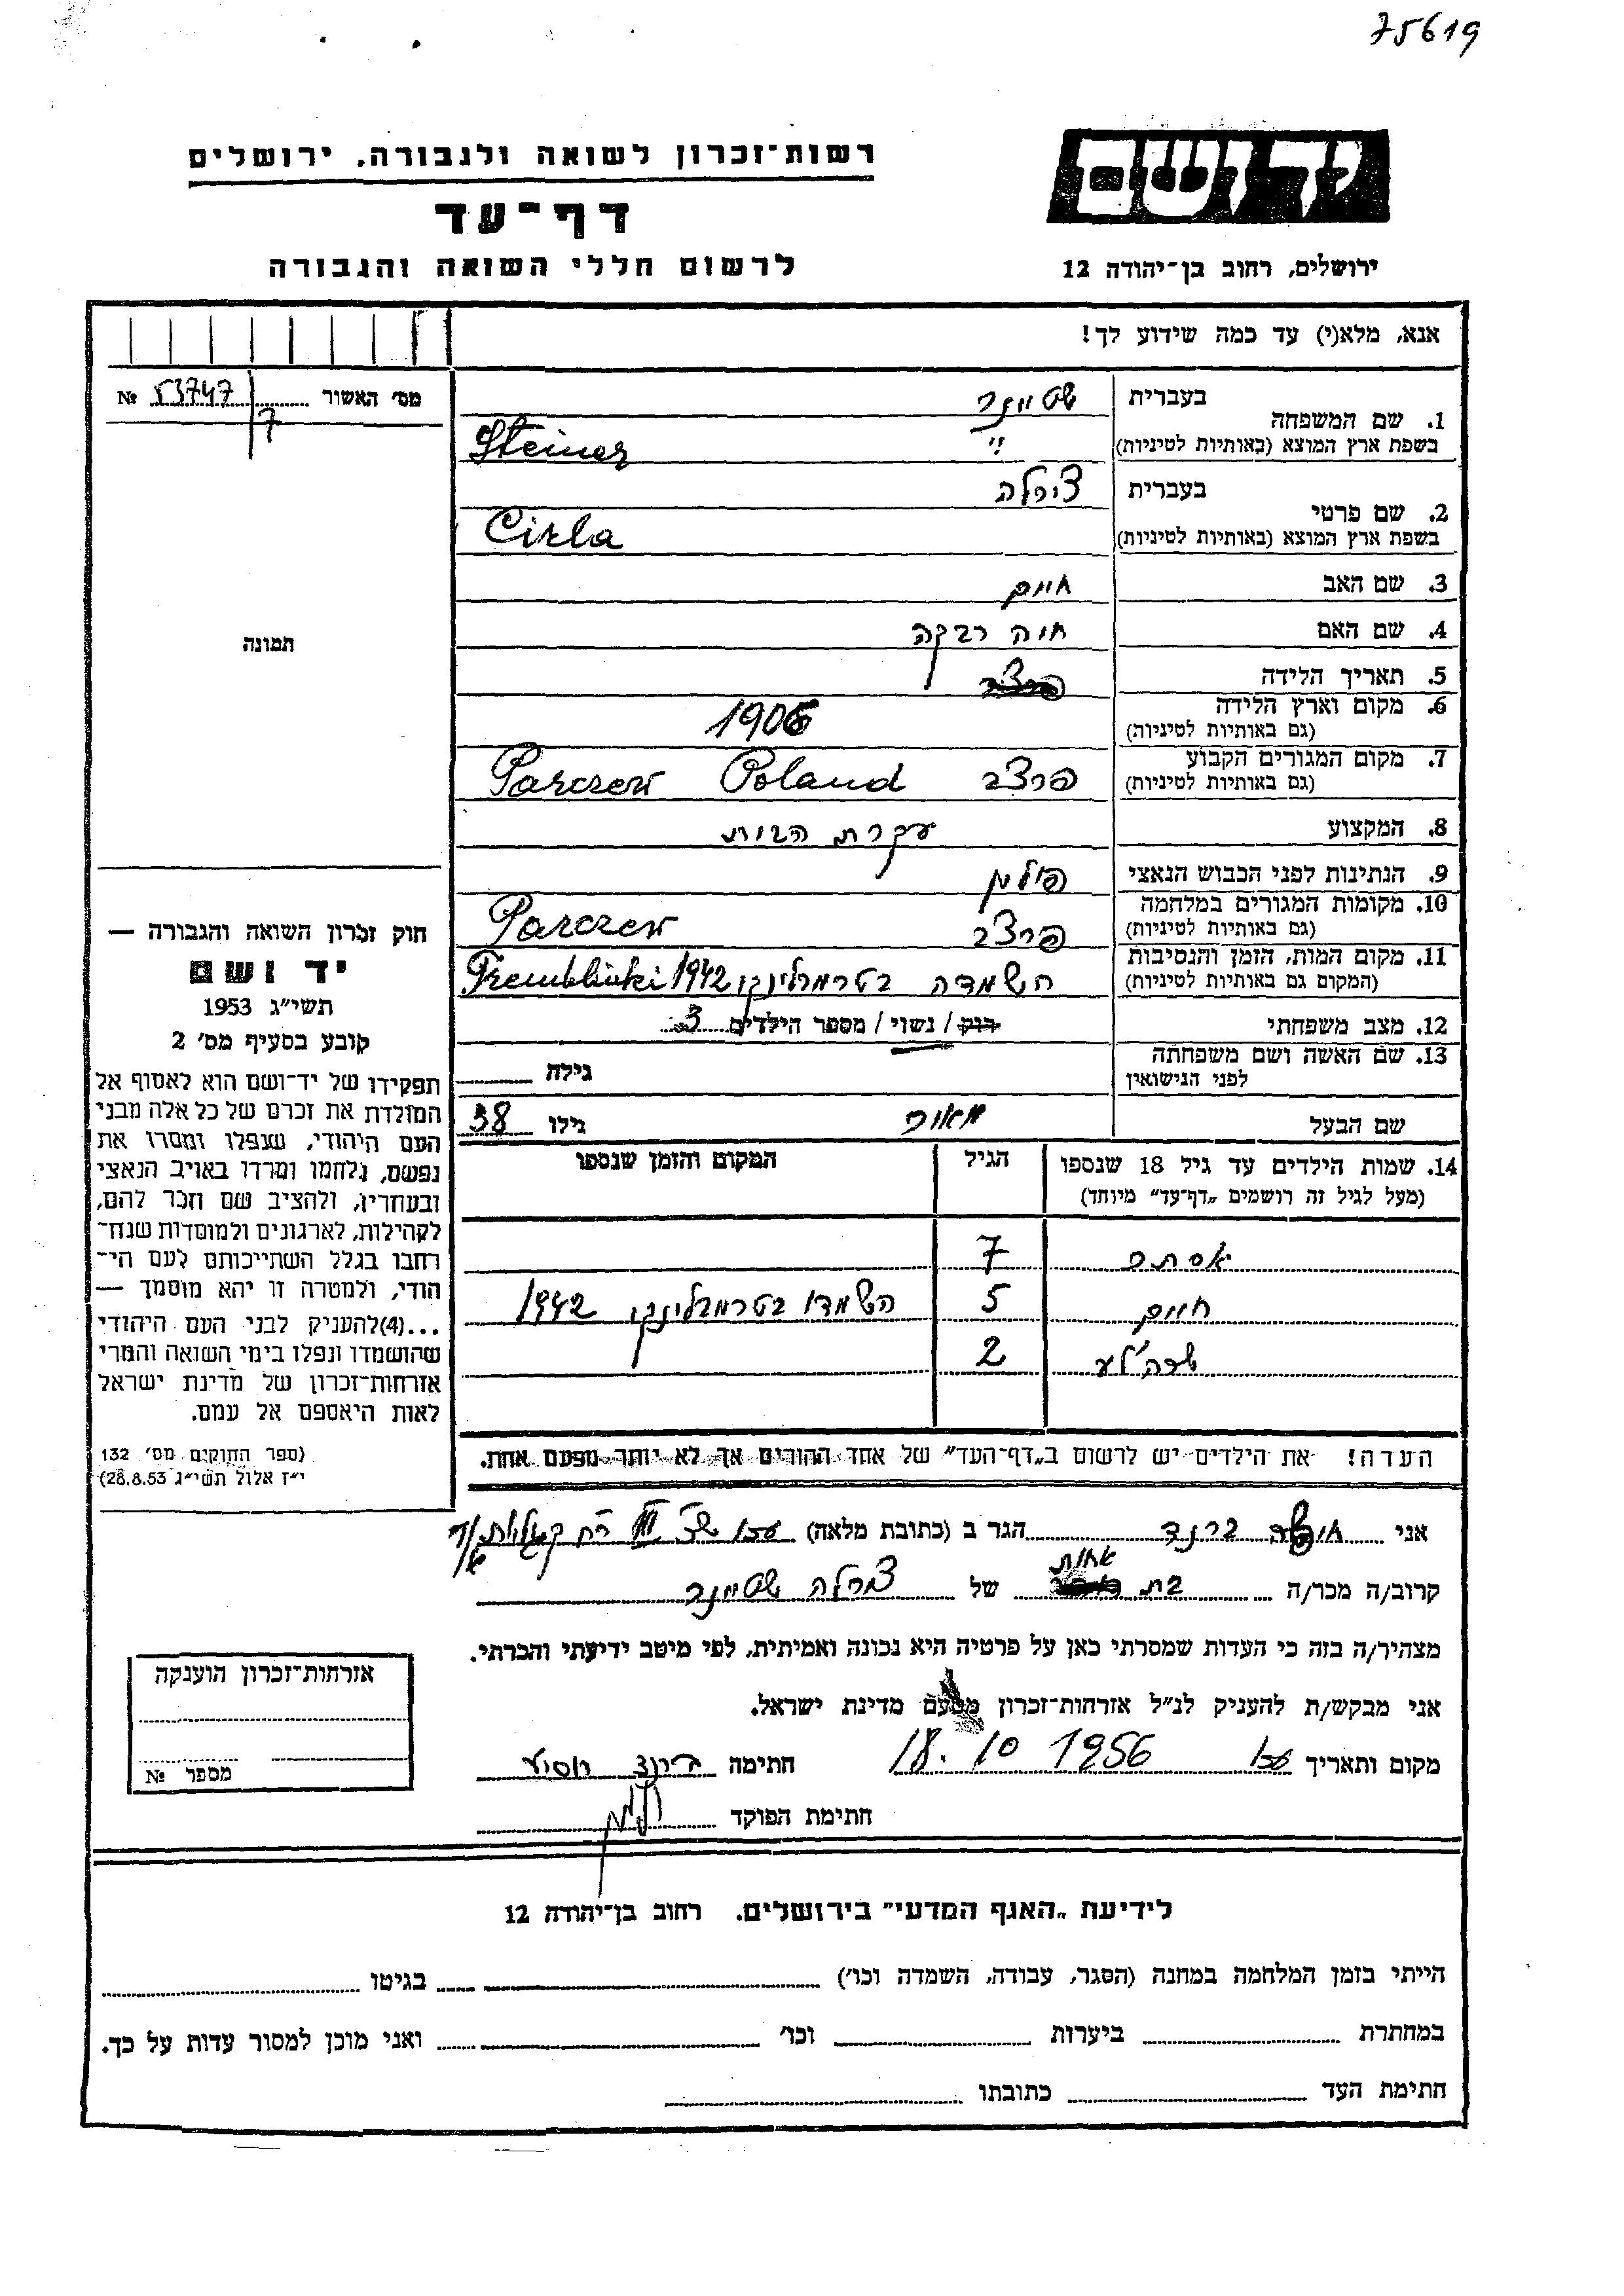 75619
רשות-זכרון לשואה ולגבורה, ירושלים
דף-עד
לרשום חללי השואה והגבורה
יד ושם
ירושלים, רחוב בן-יהודה 12
אנא, מלא(י) עד כמה שידוע לך!
מס' האשור № 53747/7
1. שם המשפחה
בעברית שטיינר
בשפת ארץ המוצא (באותיות לטיניות) Steiner
2. שם פרטי
בעברית צירלה
בשפת ארץ המוצא (באותיות לטיניות) Cirla
3. שם האב חיים
4. שם האם חיה רבקה
5. תאריך הלידה
6. מקום וארץ הלידה
(גם באותיות לטיניות) 1906
7. מקום המגורים הקבוע
(גם באותיות לטיניות) פרצב Poland Parczew
8. המקצוע עקרת הבית
9. הנתינות לפני הכבוש הנאצי פולין
10. מקומות המגורים במלחמה
(גם באותיות לטיניות) פרצב Parczew
11. מקום המות, הזמן והנסיבות
(המקום גם באותיות לטיניות) השמדה בטרמבלינקי 1942 Tremblinki
12. מצב משפחתי רוק / נשוי / מספר הילדים 3
13. שם האשה ושם משפחתה
לפני הנישואין גילה
שם הבעל מאיר גילו 38
14. שמות הילדים עד גיל 18 שנספו הגיל המקום והזמן שנספו
(מעל לגיל זה רושמים „דף-עד" מיוחד)
אסתר 7
חיים 5 השמדו בטרמבלינקי 1942
שרה'לע 2
הערה! את הילדים יש לרשום ב„דף-העד" של אחד ההורים אך לא יותר מפעם אחת.
תמונה
חוק זכרון השואה והגבורה —
יד ושם
תשי"ג 1953
קובע בסעיף מס' 2
תפקידו של יד-ושם הוא לאסוף אל
המולדת את זכרם של כל אלה מבני
העם היהודי, שנפלו ומסרו את
נפשם, נלחמו ומרדו באויב הנאצי
ובעוזריו, ולהציב שם וזכר להם,
לקהילות, לארגונים ולמוסדות שנח-
רבו בגלל השתייכותם לעם הי-
הודי, ולמטרה זו יהא מוסמך —
...(4)להעניק לבני העם היהודי
שהושמדו ונפלו בימי השואה והמרי
אזרחות-זכרון של מדינת ישראל
לאות היאספם אל עמם.
(ספר החוקים מס' 132
י"ז אלול תשי"ג 28.8.53)
אני ברנד הגר ב (כתובת מלאה)
קרוב/ה מכר/ה בת אחות של צירלה שטיינר
מצהיר/ה בזה כי העדות שמסרתי כאן על פרטיה היא נכונה ואמיתית, לפי מיטב ידיעתי והכרתי.
אני מבקש/ת להעניק לנ"ל אזרחות-זכרון מטעם מדינת ישראל.
מקום ותאריך 18. 10 1956 חתימה
חתימת הפוקד
אזרחות-זכרון הוענקה
מספר №
לידיעת „האגף המדעי" בירושלים. רחוב בן-יהודה 12
הייתי בזמן המלחמה במחנה (הסגר, עבודה, השמדה וכו') בגיטו
במחתרת ביערות וכו' ואני מוכן למסור עדות על כך.
חתימת העד כתובתו